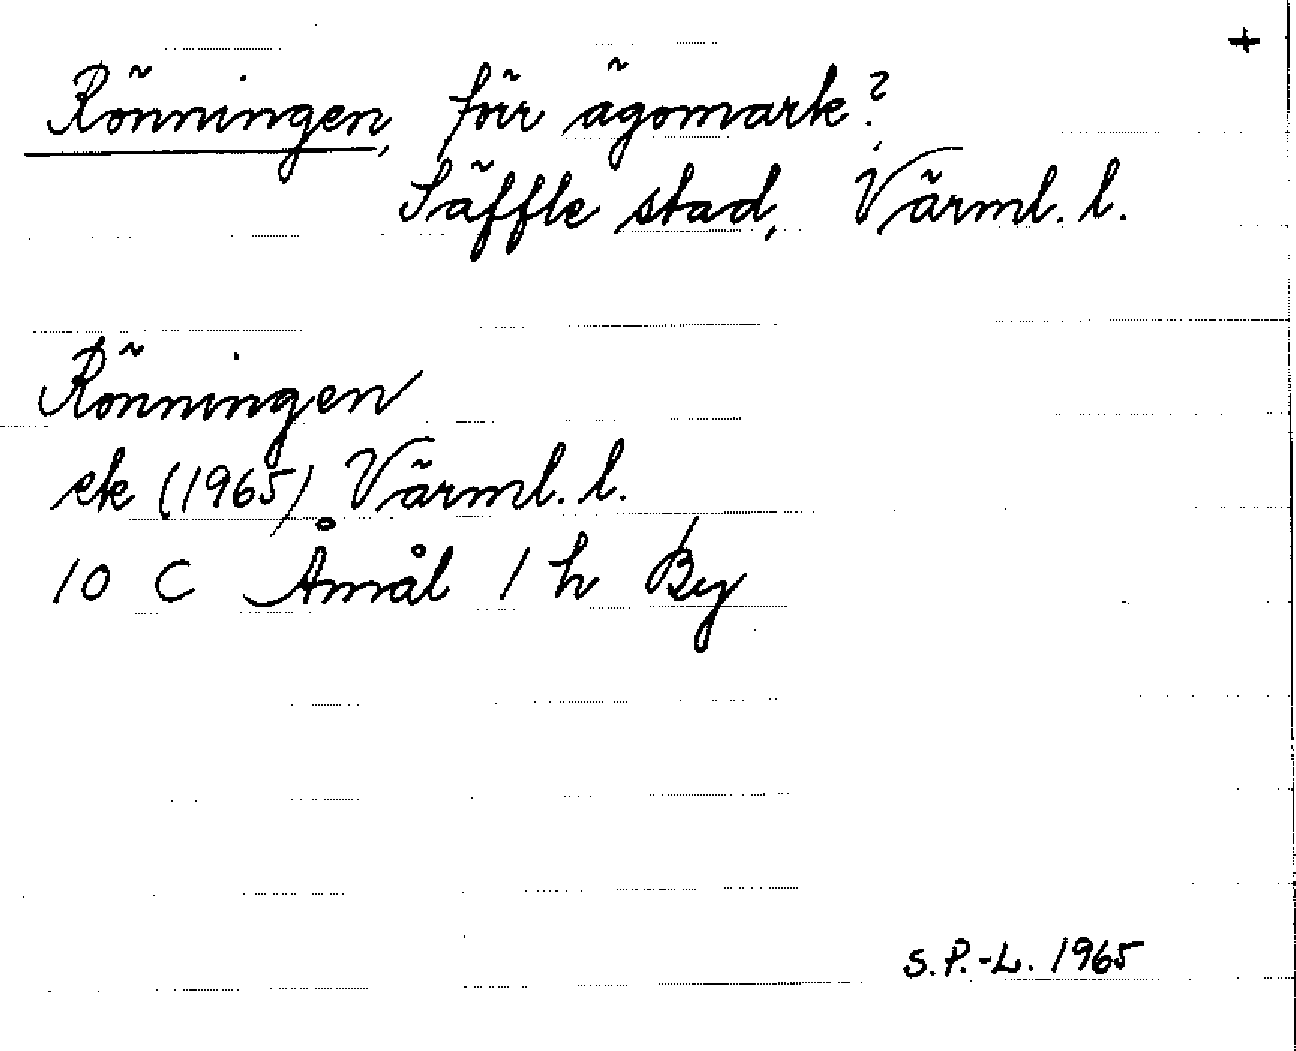 +
Rönningen, förr ägomark?
Säffle stad, Värml. l.
Rönningen
ek (1965) Värml. l.
10 C Åmål 1 h By
S.P.-L. 1965